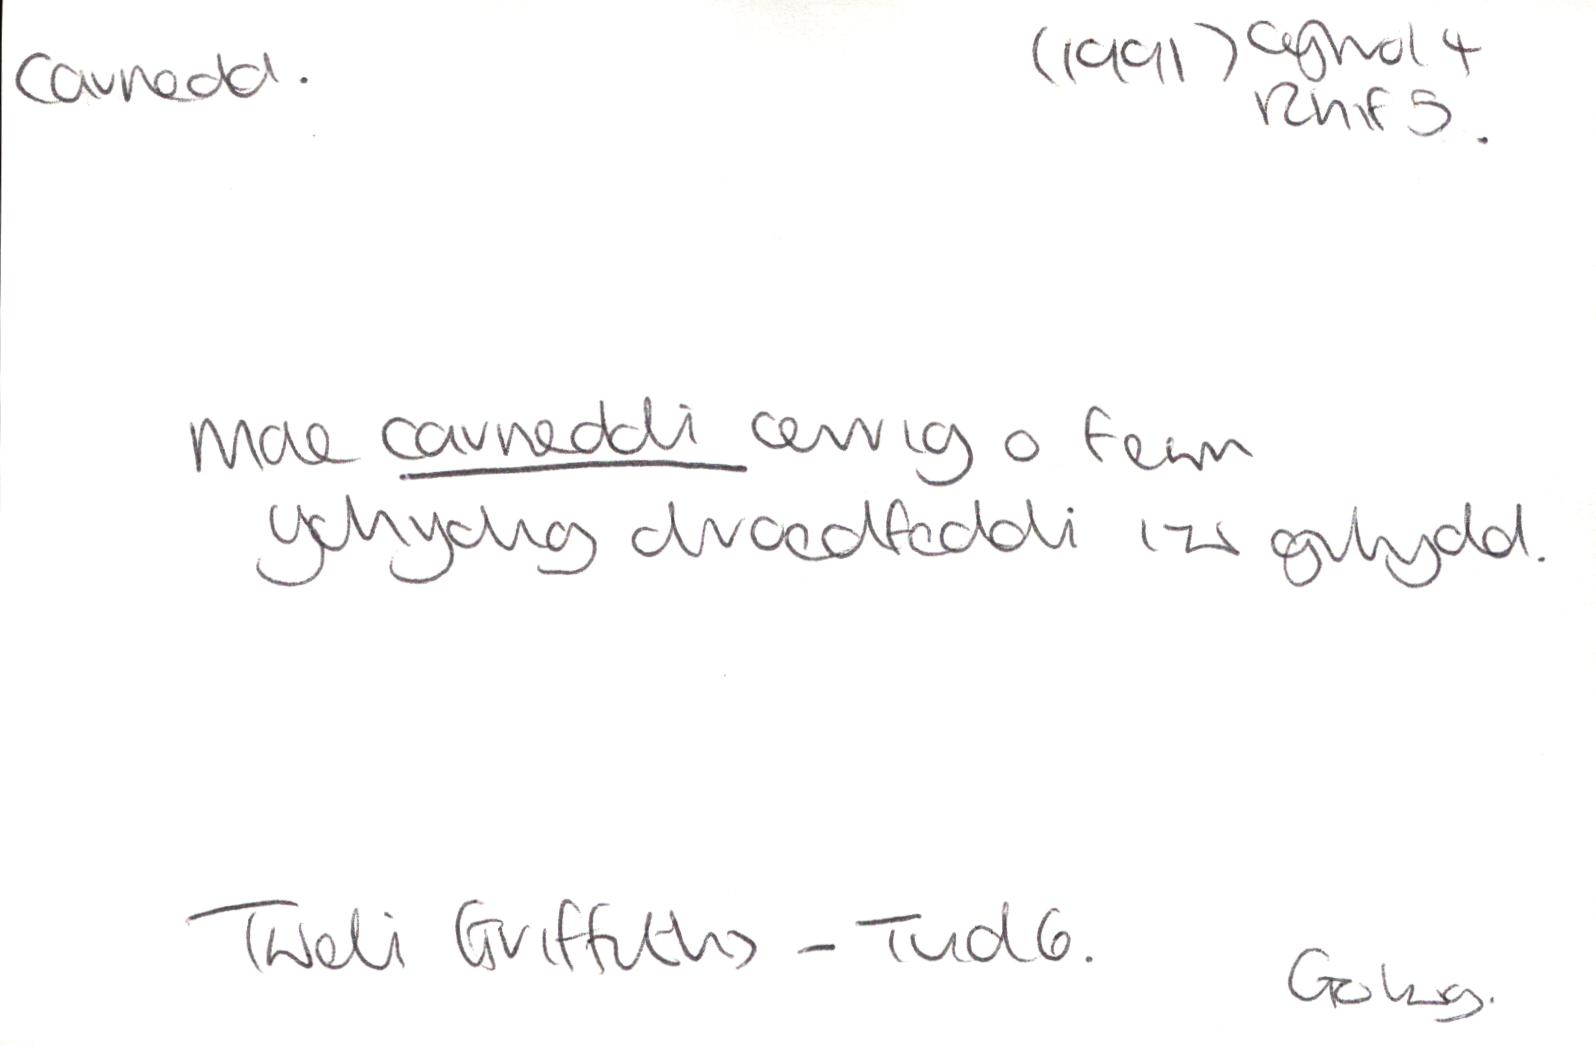 Carnedd.
(1991) Cyfrol 4
Rhif 5.
Mae carneddi cerrig o fewn
ychydig droedfeddi i'w gilydd.
Tweli Griffiths - Tud 6.
Golwg.